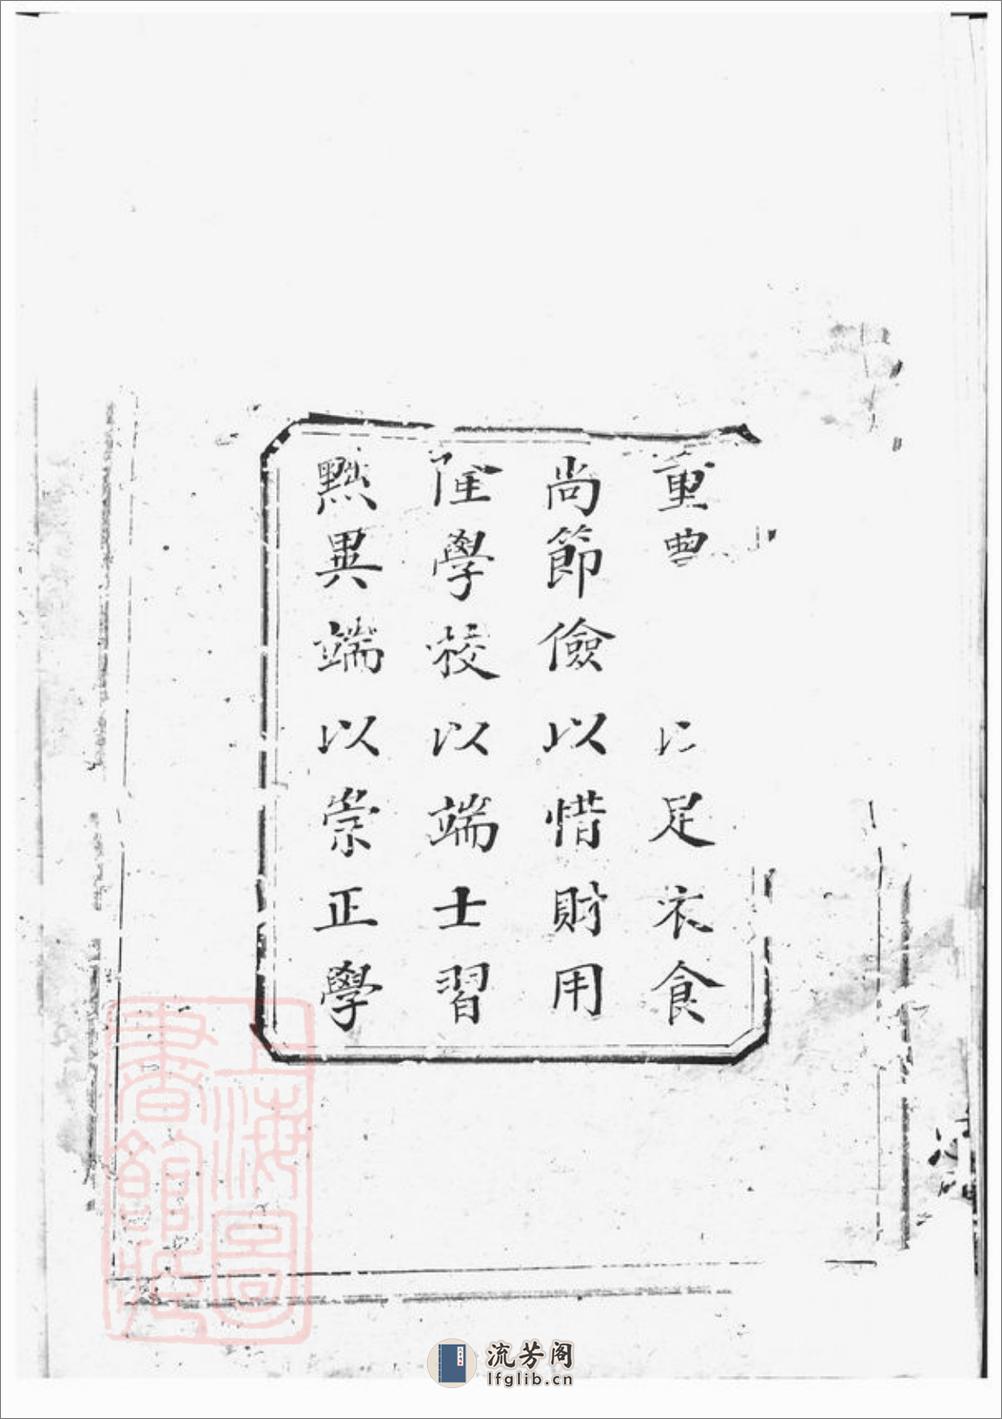 重農 以足衣食
尚節儉以惜財用
隆學校以端士習
黜異端以崇正學
上海圖書館藏
流芳阁
lfglib.cn